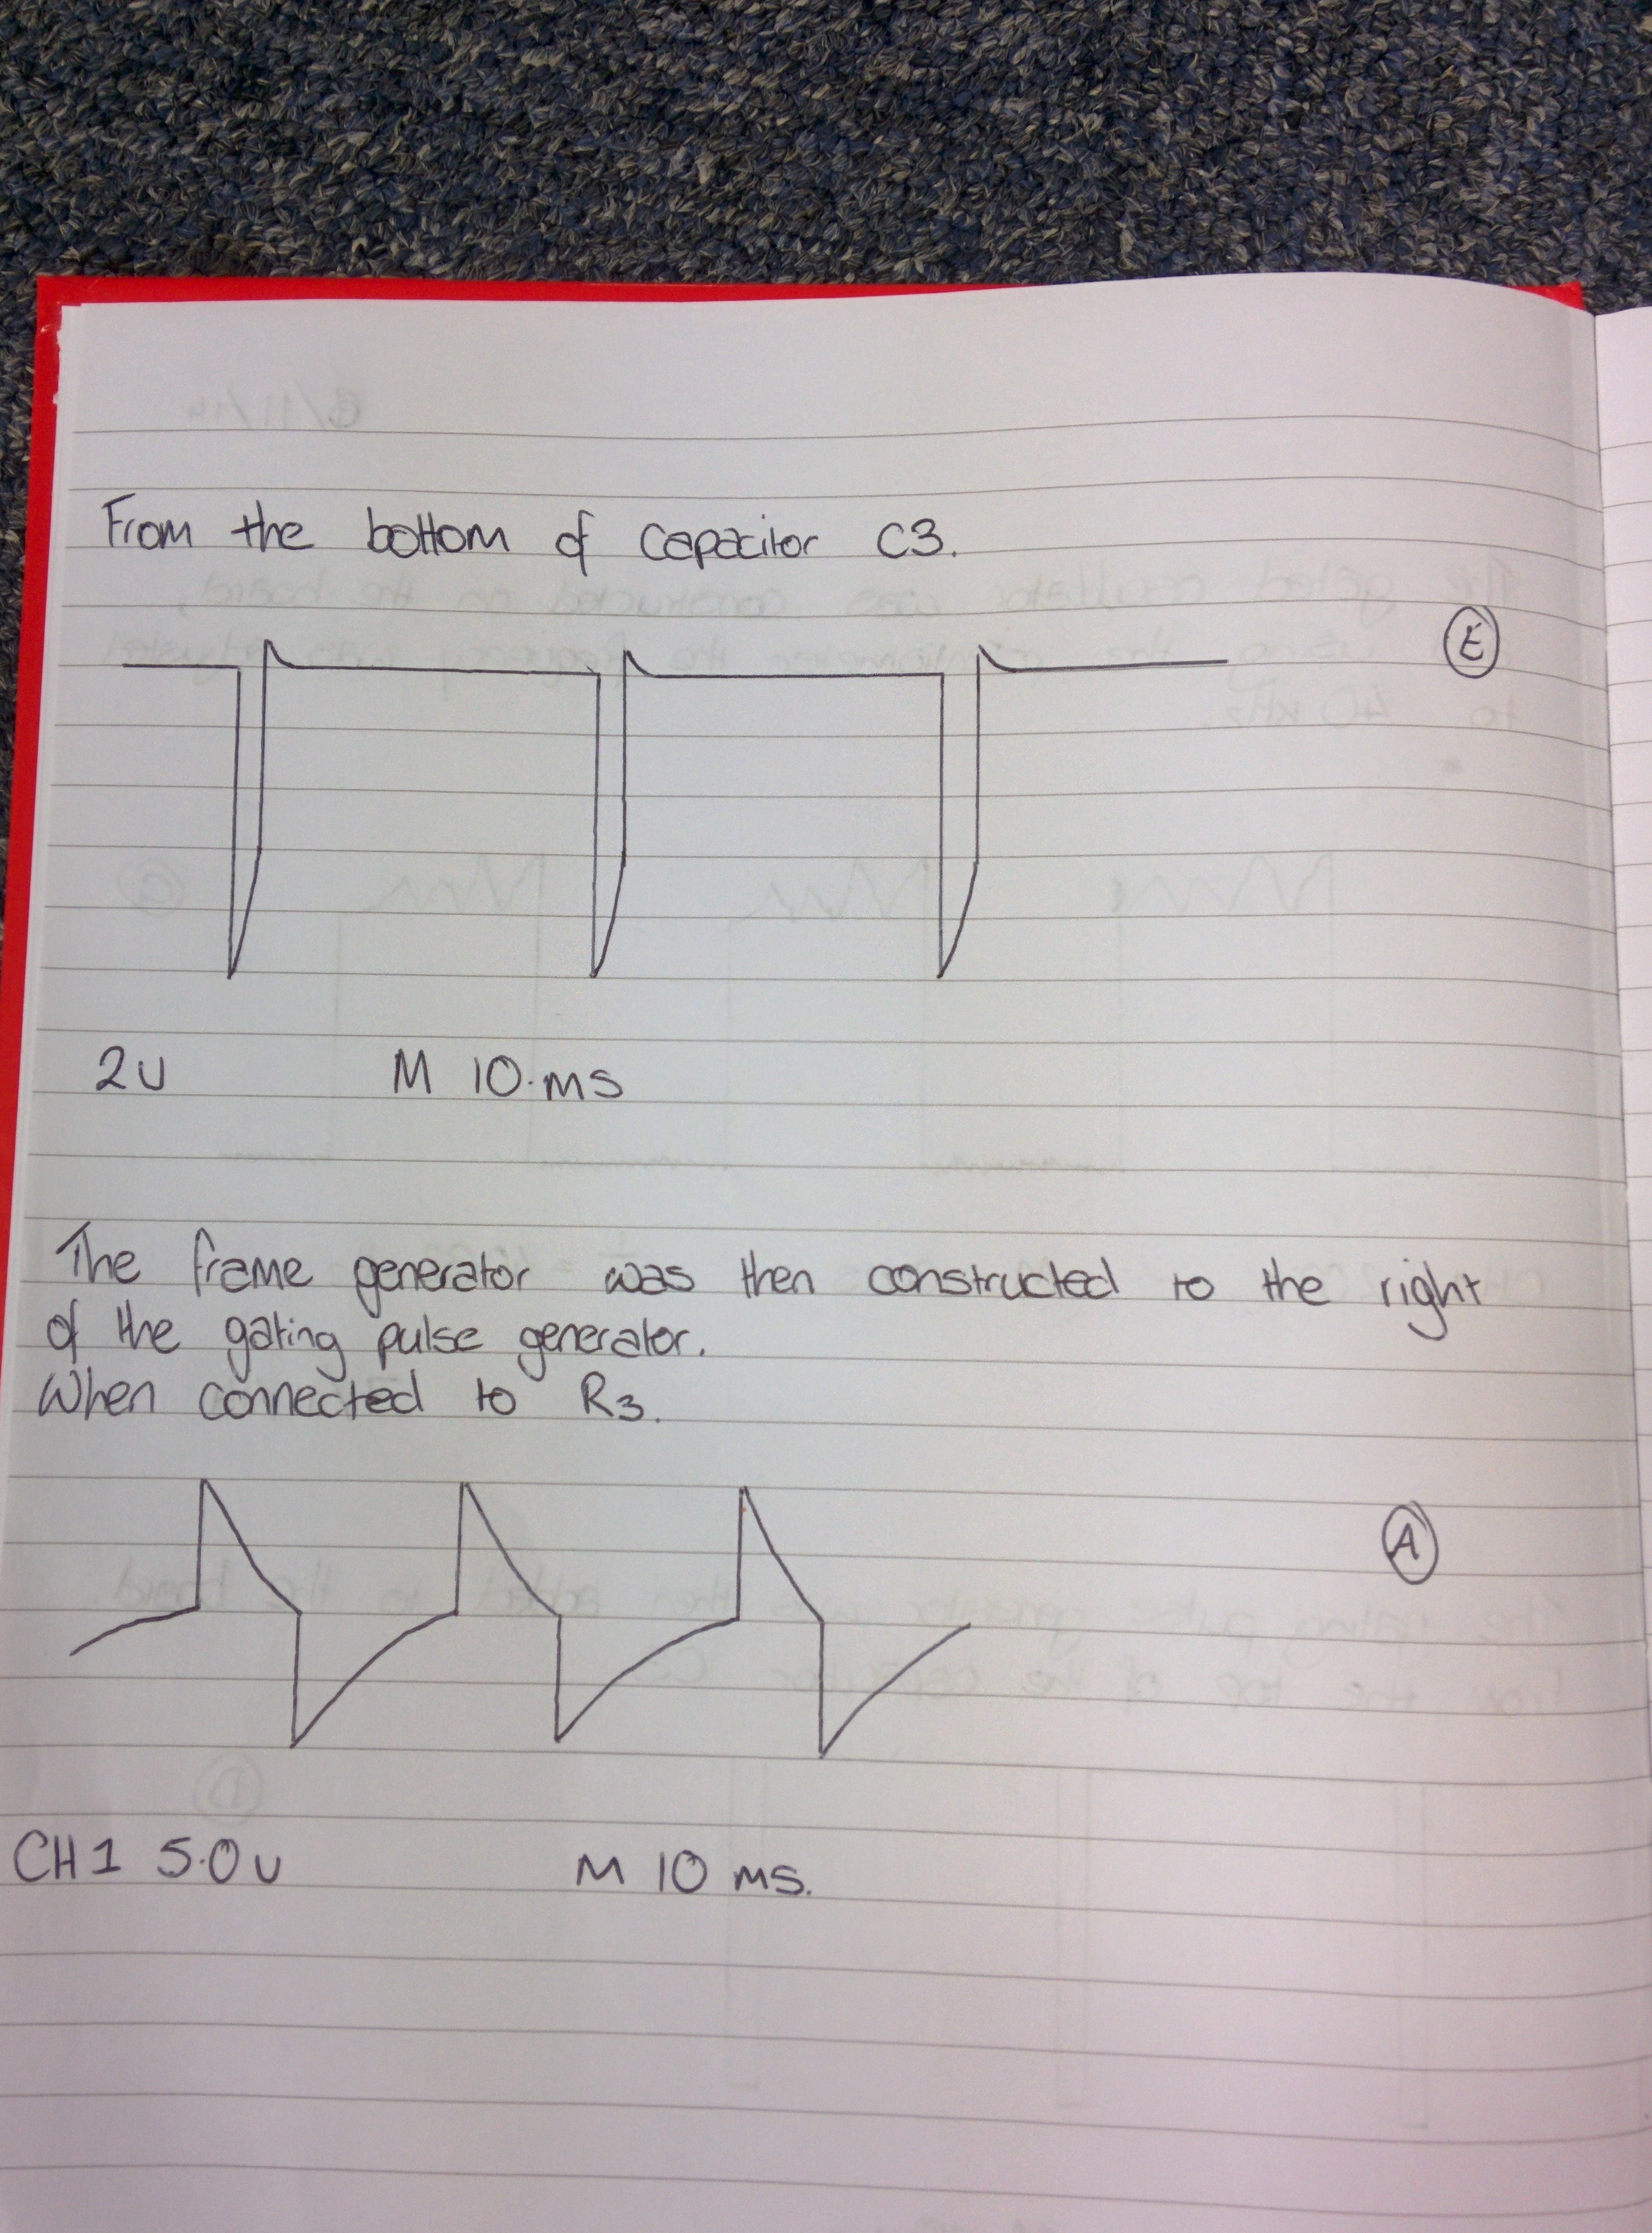 From the bottom of capacitor C3.
E
2v M 10.ms
The frame generator was then constructed to the right
of the gating pulse generator.
When connected to R3.
A
CH1 5.0v M 10 ms.